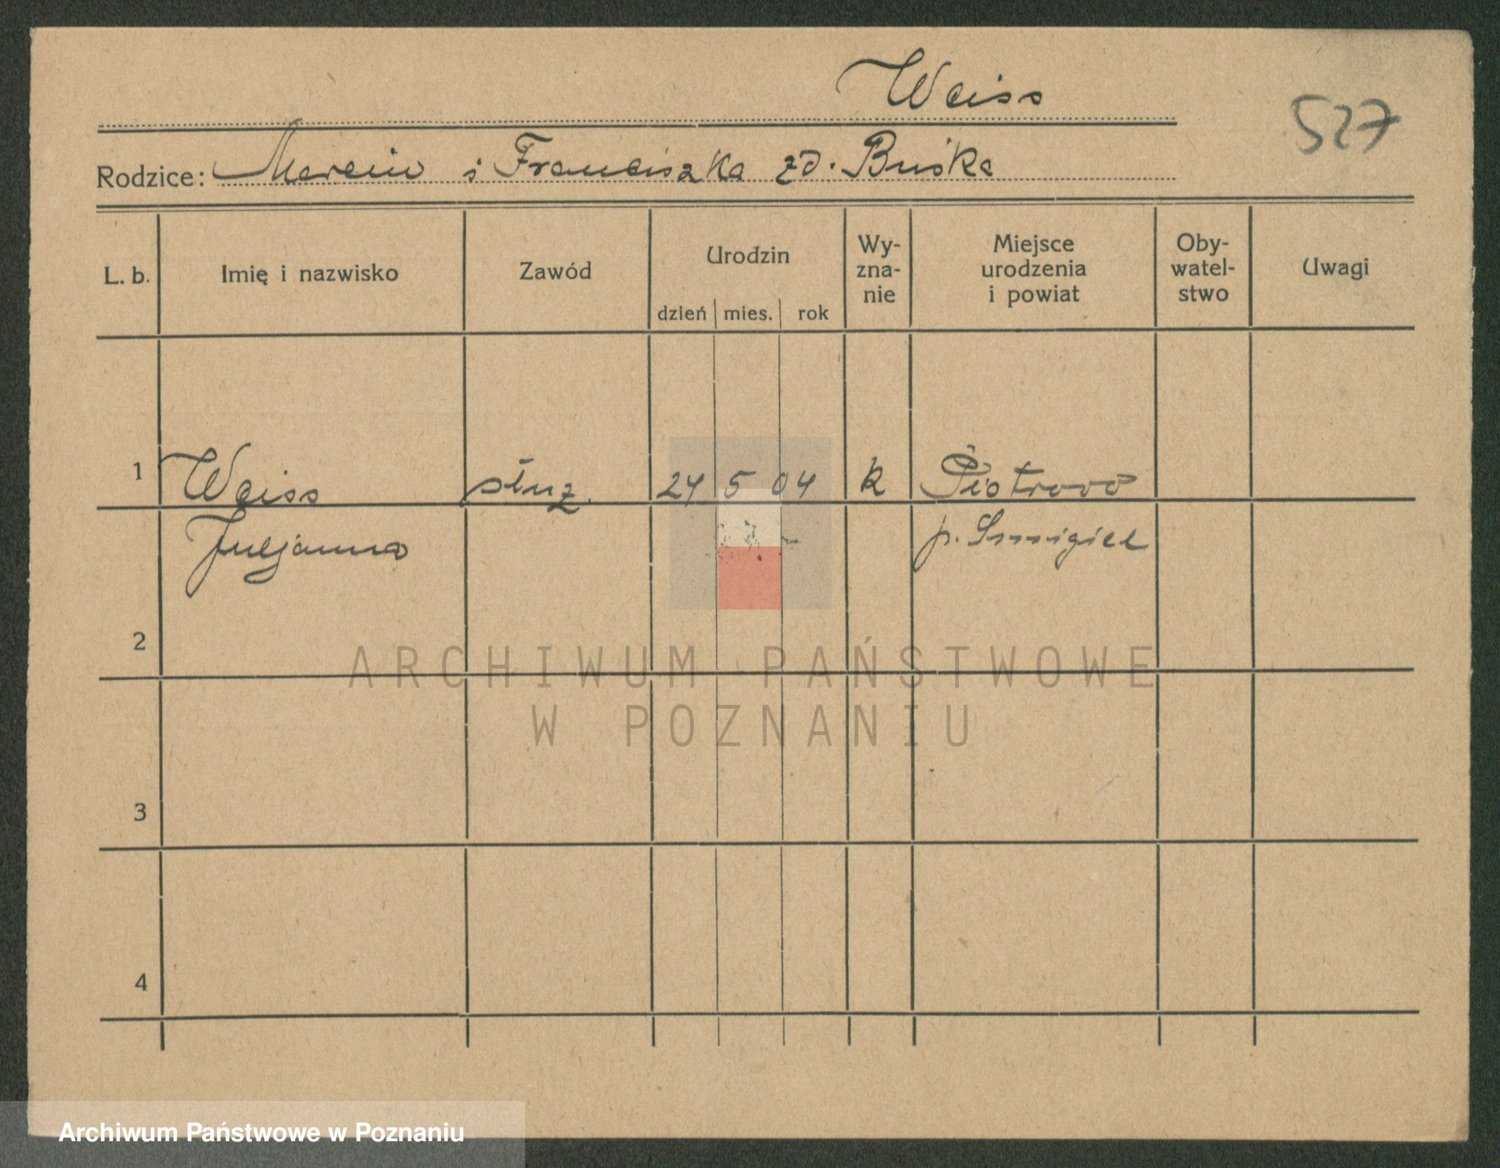 Weiss
527
Rodzice: Marcin i Franciszka zd. Buśka
L. b.
Imię i nazwisko
Zawód
Urodzin
dzień mies. rok
Wy-
zna-
nie
Miejsce
urodzenia
i powiat
Oby-
watel-
stwo
Uwagi
1 Weiss służ. 24 5 04 k Piotrowo
Juljanna p. Smigiel
2
ARCHIWUM PAŃSTWOWE
W POZNANIU
3
4
Archiwum Państwowe w Poznaniu